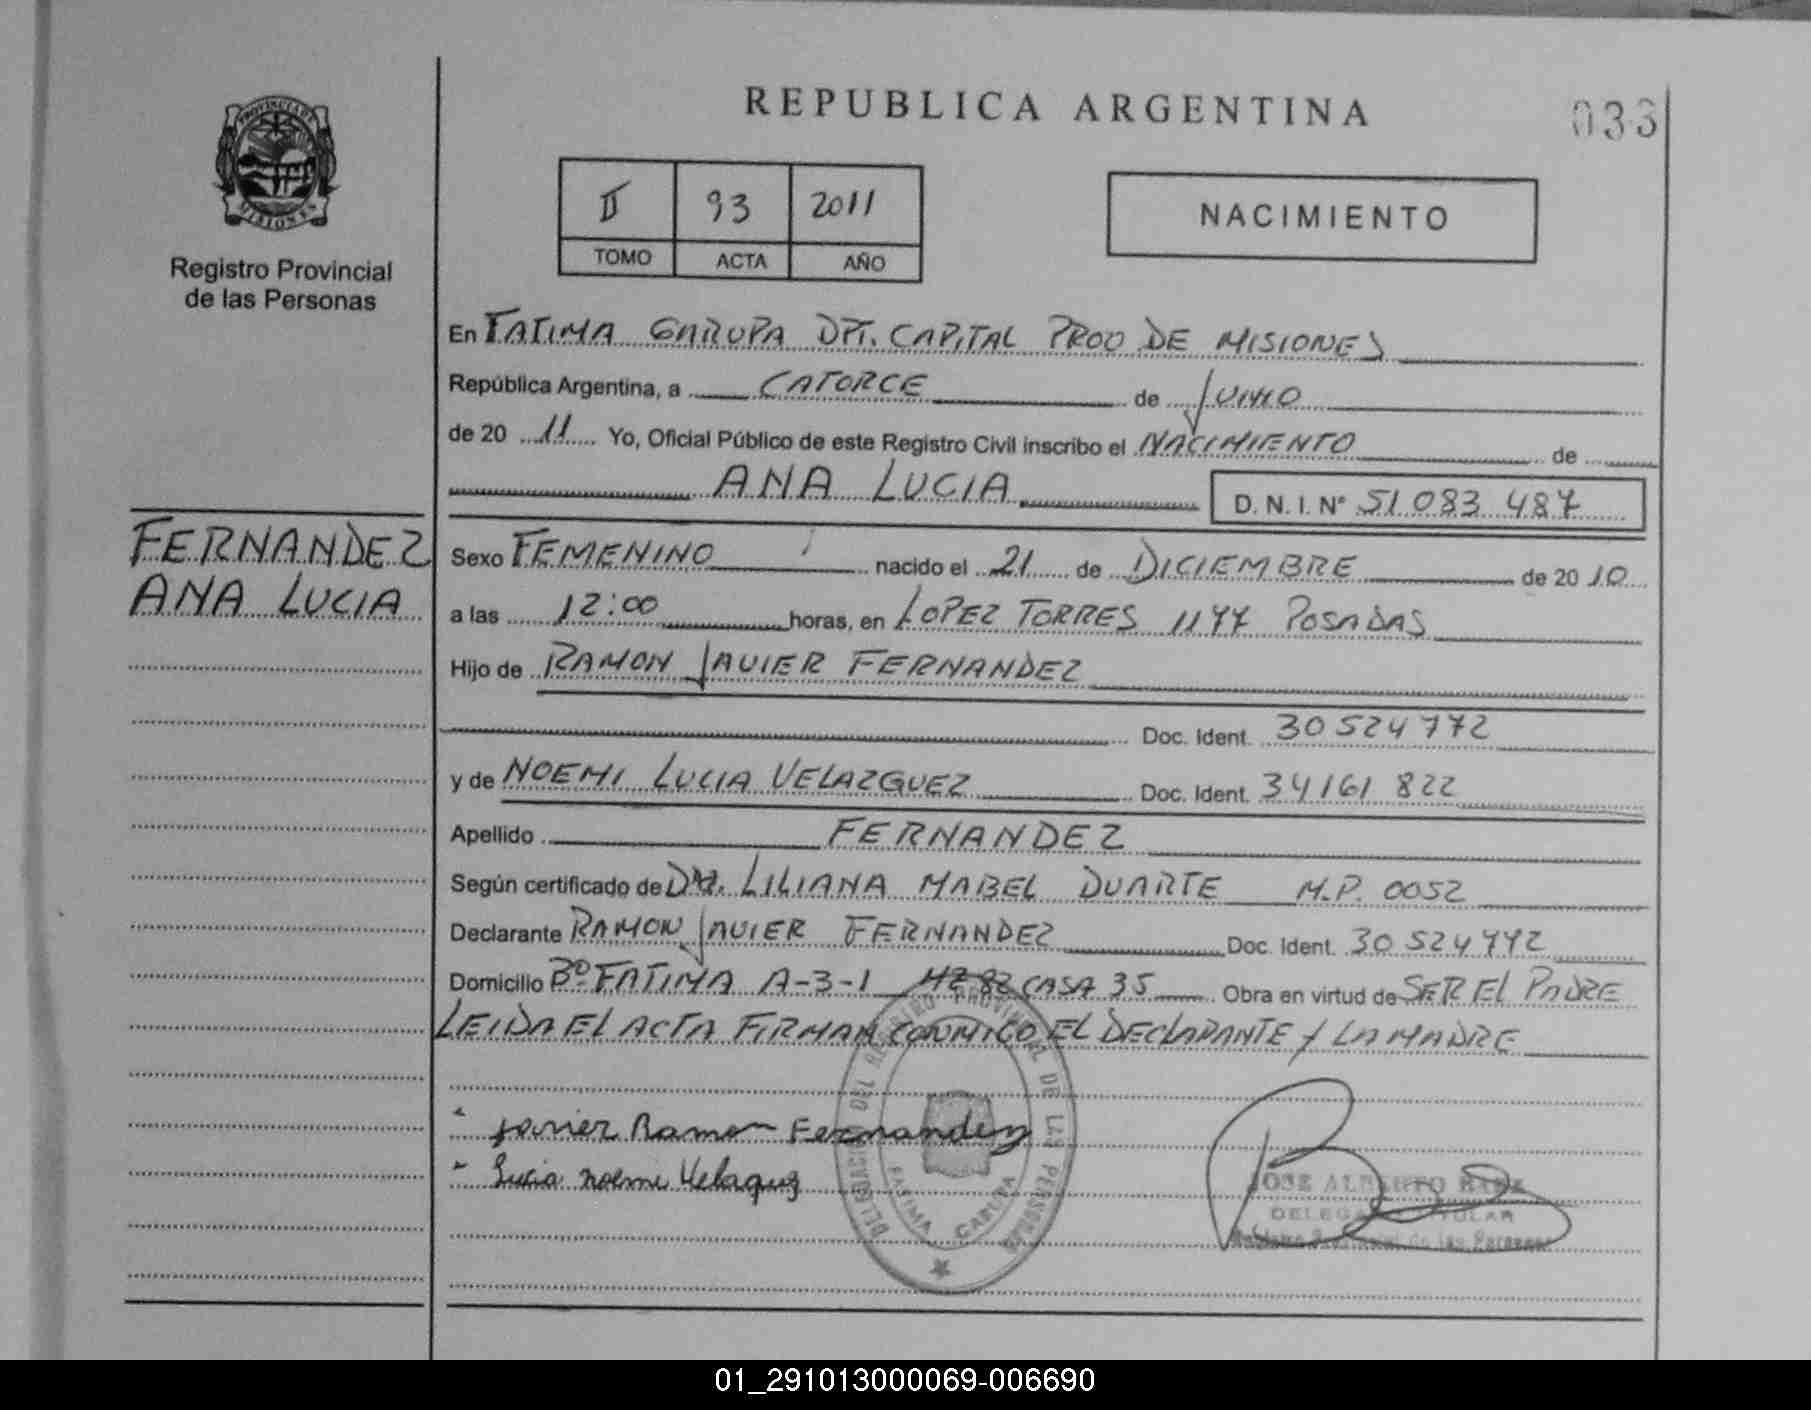 PROVINCIA DE
MISIONES
Registro Provincial
de las Personas
FERNANDEZ
ANA LUCIA
REPUBLICA ARGENTINA
033
II 93 2011
TOMO ACTA AÑO
NACIMIENTO
En FATIMA GARUPA DPT. CAPITAL PROV DE MISIONES
República Argentina, a CATORCE de JUNIO
de 20 11 Yo, Oficial Público de este Registro Civil inscribo el NACIMIENTO de
ANA LUCIA D. N. I. Nº 51 083 487
Sexo FEMENINO nacido el 21 de DICIEMBRE de 20 10
a las 12:00 horas, en LOPEZ TORRES 1177 POSADAS
Hijo de RAMON JAVIER FERNANDEZ
Doc. Ident. 30 524 772
y de NOEMI LUCIA VELAZGUEZ Doc. Ident. 34161 822
Apellido FERNANDEZ
Según certificado de DRA. LILIANA MABEL DUARTE M.P. 0052
Declarante RAMON JAVIER FERNANDEZ Doc. Ident. 30 524 772
Domicilio Bº FATIMA A-3-1 MZ 82 CASA 35 Obra en virtud de SER EL PADRE
LEIDA EL ACTA FIRMAN CONMIGO EL DECLARANTE Y LA MADRE
Javier Ramon Fernandez
Lucia noemi Velaquez
DELEGACION DEL REGISTRO PROVINCIAL DE LAS PERSONAS
FATIMA GARUPA
JOSE ALBERTO
DELEGADO TITULAR
Registro Provincial de las Personas
01_291013000069-006690